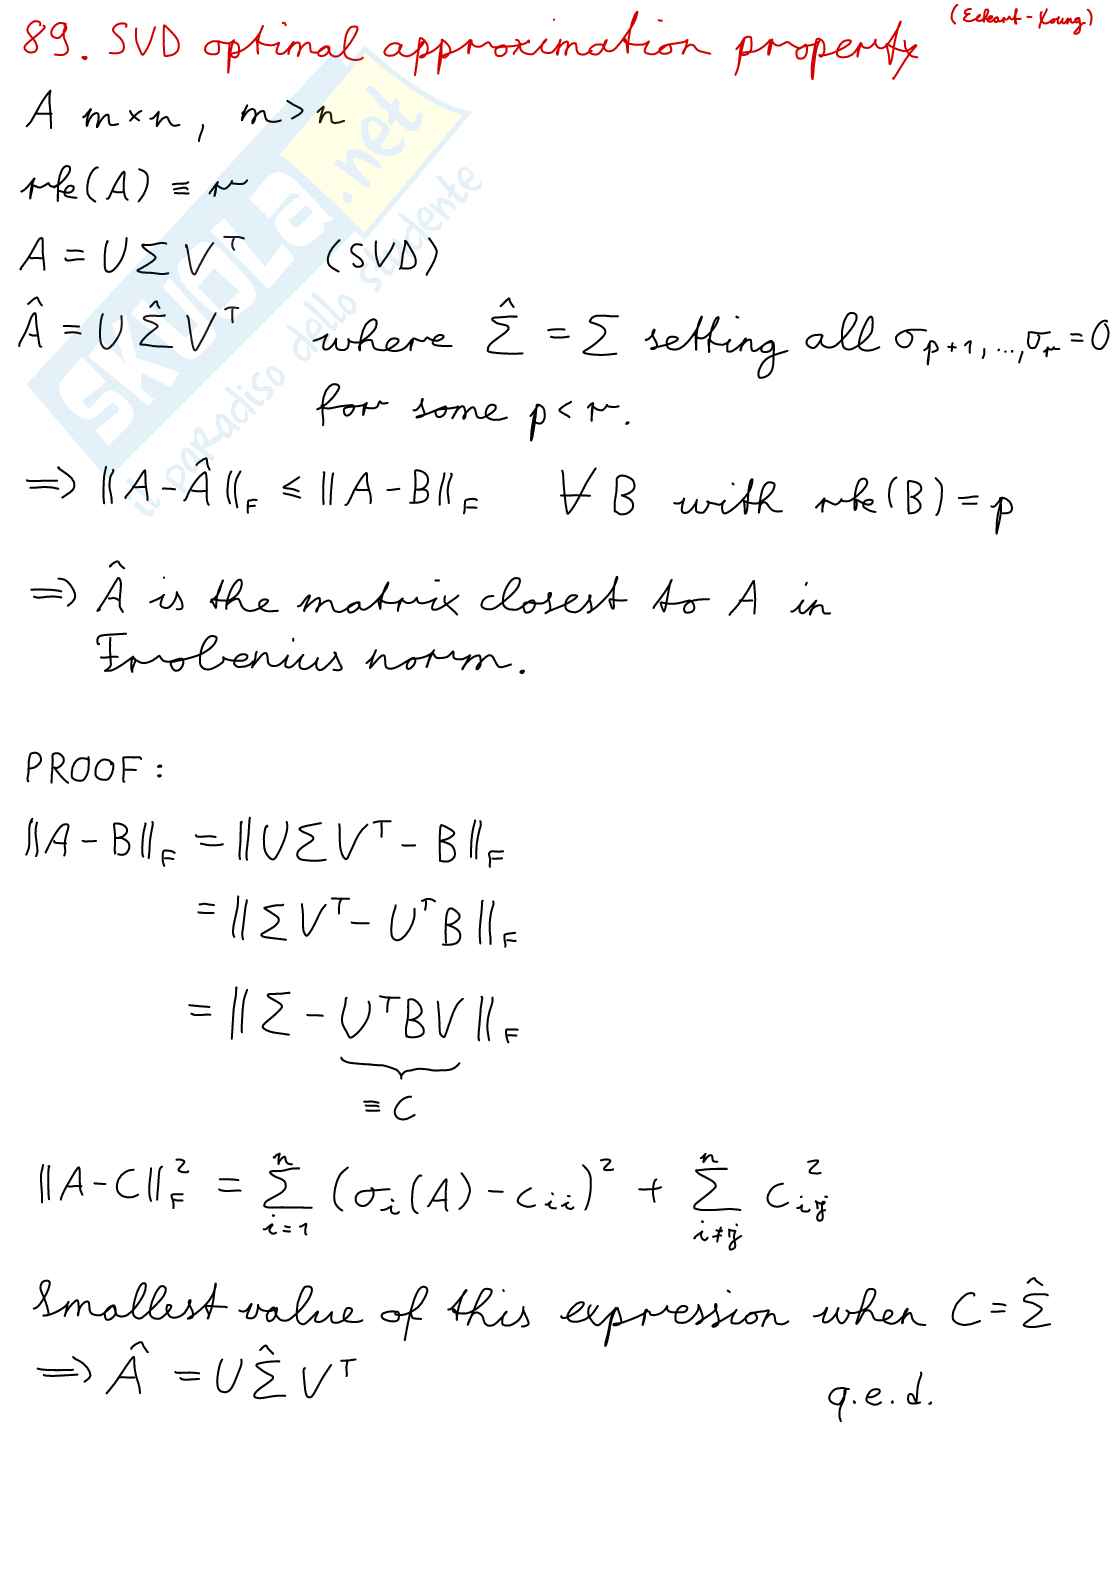 (Eckart-Young)
89. SVD optimal approximation property
A m×n, m>n
rk(A) ≡ r
A = UΣVᵀ (SVD)
Â = UΣ̂Vᵀ where Σ̂ = Σ setting all σₚ₊₁,...,σᵣ=0
for some p<r.
⇒ ‖A-Â‖_F ≤ ‖A-B‖_F ∀ B with rk(B)=p
⇒ Â is the matrix closest to A in
Frobenius norm.
PROOF:
‖A-B‖_F = ‖UΣVᵀ-B‖_F
= ‖ΣVᵀ-UᵀB‖_F
= ‖Σ-UᵀBV‖_F
≡ C
‖A-C‖_F² = Σ_{i=1}^{n} (σᵢ(A)-c_{ii})² + Σ_{i≠j}^{n} c_{ij}²
Smallest value of this expression when C=Σ̂
⇒ Â = UΣ̂Vᵀ
q.e.d.
SKUOLA.net
il paradiso dello studente